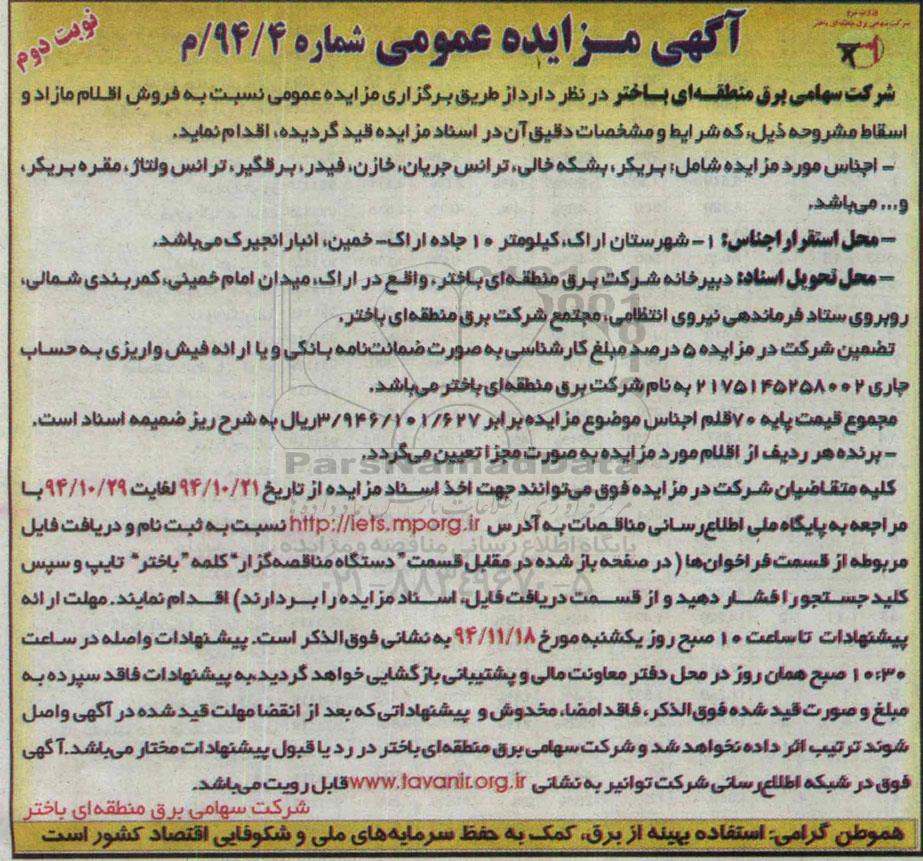 وزارت نیرو
شرکت سهامی برق منطقه‌ای باختر
نوبت دوم
آگهی مزایده عمومی شماره ۹۴/۴/م
شرکت سهامی برق منطقه‌ای باختر در نظر دارد از طریق برگزاری مزایده عمومی نسبت به فروش اقلام مازاد و
اسقاط مشروحه ذیل، که شرایط و مشخصات دقیق آن در اسناد مزایده قید گردیده، اقدام نماید.
- اجناس مورد مزایده شامل: بریکر، بشکه خالی، ترانس جریان، خازن، فیدر، برقگیر، ترانس ولتاژ، مقره بریکر،
و... می‌باشد.
- محل استقرار اجناس: ۱- شهرستان اراک، کیلومتر ۱۰ جاده اراک- خمین، انبار انجیرک می‌باشد.
- محل تحویل اسناد: دبیرخانه شرکت برق منطقه‌ای باختر، واقع در اراک، میدان امام خمینی، کمربندی شمالی،
روبروی ستاد فرماندهی نیروی انتظامی، مجتمع شرکت برق منطقه‌ای باختر.
تضمین شرکت در مزایده ۵ درصد مبلغ کارشناسی به صورت ضمانت‌نامه بانکی و یا ارائه فیش واریزی به حساب
جاری ۲۱۷۵۱۴۵۲۵۸۰۰۲ به نام شرکت برق منطقه‌ای باختر می‌باشد.
مجموع قیمت پایه ۷۰ قلم اجناس موضوع مزایده برابر ۳/۹۴۶/۱۰۱/۶۲۷ ریال به شرح ریز ضمیمه اسناد است.
- برنده هر ردیف از اقلام مورد مزایده به صورت مجزا تعیین می‌گردد.
ParsNamadData
کلیه متقاضیان شرکت در مزایده فوق می‌توانند جهت اخذ اسناد مزایده از تاریخ ۹۴/۱۰/۲۱ لغایت ۹۴/۱۰/۲۹ با
مراجعه به پایگاه ملی اطلاع‌رسانی مناقصات به آدرس http://iets.mporg.ir نسبت به ثبت نام و دریافت فایل
پایگاه اطلاع رسانی مناقصه و مزایده
مربوطه از قسمت فراخوان‌ها (در صفحه باز شده در مقابل قسمت "دستگاه مناقصه‌گزار" کلمه "باختر" تایپ و سپس
۰۲۱-۸۸۳۴۹۶۷۰-۵
کلید جستجو را فشار دهید و از قسمت دریافت فایل، اسناد مزایده را بردارند) اقدام نمایند. مهلت ارائه
پیشنهادات تا ساعت ۱۰ صبح روز یکشنبه مورخ ۹۴/۱۱/۱۸ به نشانی فوق‌الذکر است. پیشنهادات واصله در ساعت
۱۰:۳۰ صبح همان روز در محل دفتر معاونت مالی و پشتیبانی بازگشایی خواهد گردید. به پیشنهادات فاقد سپرده به
مبلغ و صورت قید شده فوق‌الذکر، فاقد امضا، مخدوش و پیشنهاداتی که بعد از انقضا مهلت قید شده در آگهی واصل
شوند ترتیب اثر داده نخواهد شد و شرکت سهامی برق منطقه‌ای باختر در رد یا قبول پیشنهادات مختار می‌باشد. آگهی
فوق در شبکه اطلاع‌رسانی شرکت توانیر به نشانی www.tavanir.org.ir قابل رویت می‌باشد.
شرکت سهامی برق منطقه‌ای باختر
هموطن گرامی: استفاده بهینه از برق، کمک به حفظ سرمایه‌های ملی و شکوفایی اقتصاد کشور است